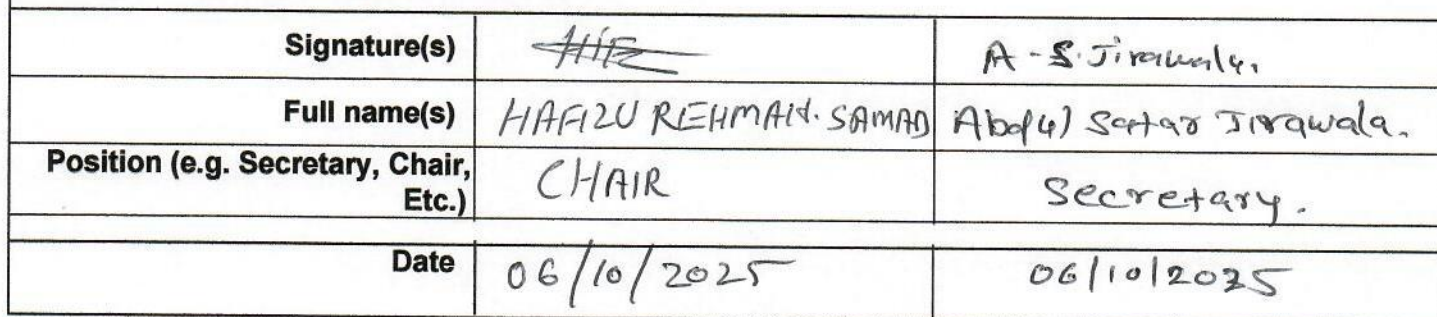 Signature(s) A-S. Jirawala.
Full name(s) HAFIZU REHMAN. SAMAD Abdul Satar Jirawala.
Position (e.g. Secretary, Chair, CHAIR Secretary.
Etc.)
Date 06/10/2025 06/10/2025